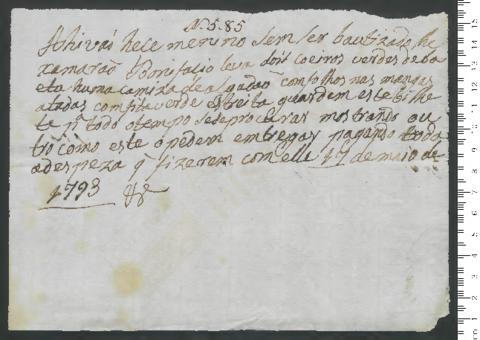 N. 585
Ahi vai hece menino sem ser bautizado he
xamarao Bonifasio leva dois coeiros verdes de ba
eta huma camiza de algudão com folhos nas mangas
atadas com fita verde estreita guardem este bilhe
te pª todo otempo sedeprocuras mostrando ou
tro como este o pedem emtregas pagando toda
a despeza q fizerem com elle 17 de maio de
1793